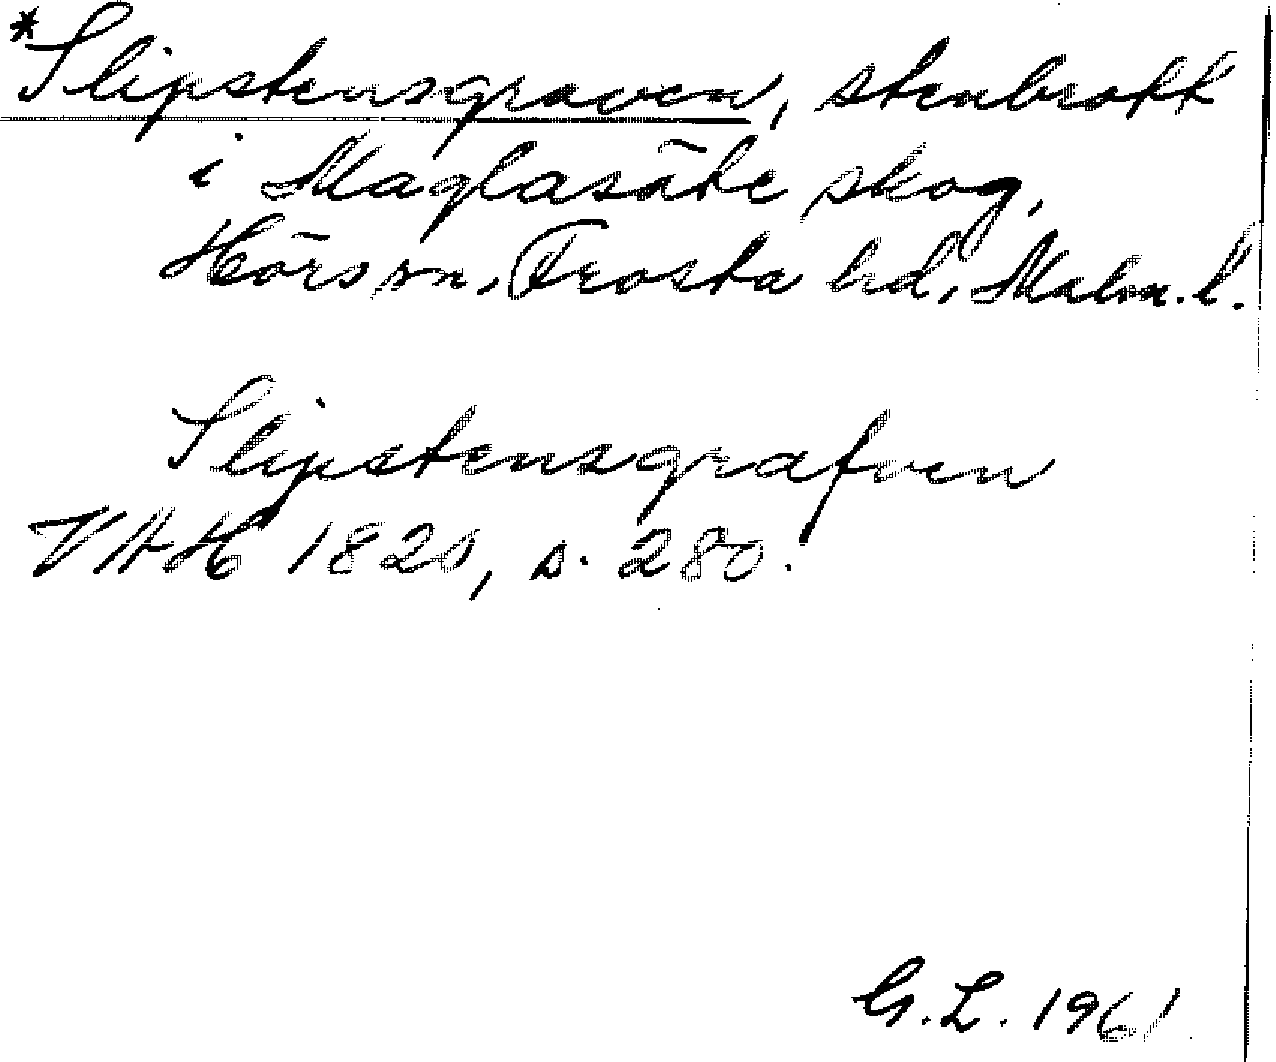 *Slipstensgraven, stenbrott
i Maglasäte skog,
Hörs sn, Frosta hd, Malm. l.
Slipstensgrafven
VAH 1820, s. 280.
G. L. 1961